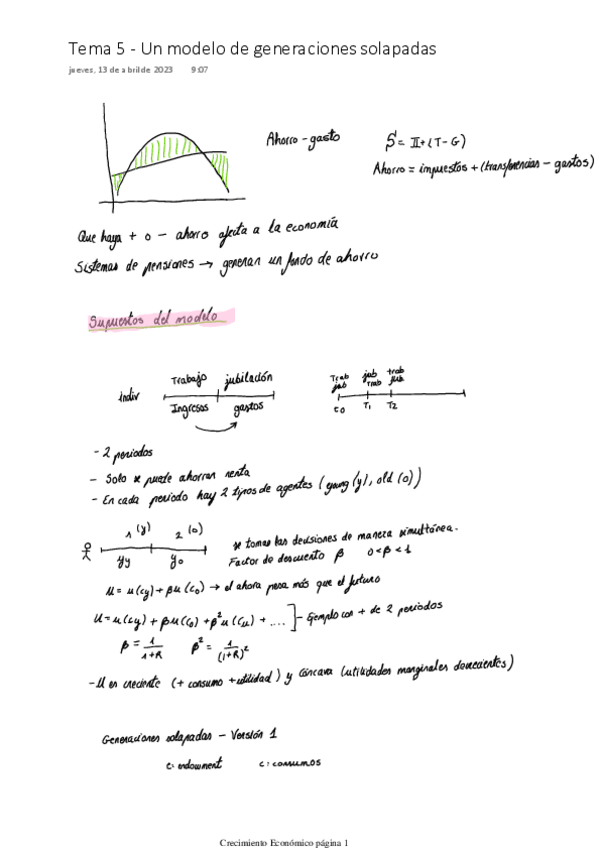 Tema 5 - Un modelo de generaciones solapadas
jueves, 13 de abril de 2023 9:07
Ahorro - gasto
S = II + (T - G)
Ahorro = impuestos + (transferencias - gastos)
Que haya + o - ahorro afecta a la economía
Sistemas de pensiones → generan un fondo de ahorro
Supuestos del modelo
Trabajo jubilación
Indiv
Ingresos gastos
Trab jub trab
jub Trab jub
to T1 T2
- 2 periodos
- Solo se puede ahorrar renta
- En cada periodo hay 2 tipos de agentes (young (y), old (o))
1 (y) 2 (o)
yy yo
se toman las decisiones de manera simultánea.
Factor de descuento β 0<β<1
U = u(cy) + βu(co) → el ahora pesa más que el futuro
U = u(cy) + βu(co) + β²u(cu) + ....] - Ejemplo con + de 2 periodos
β = 1/1+R β² = 1/(1+R)²
- U es creciente (+ consumo + utilidad) y cóncava (utilidades marginales decrecientes)
Generaciones solapadas - Versión 1
e: endowment c: consumos
Crecimiento Económico página 1